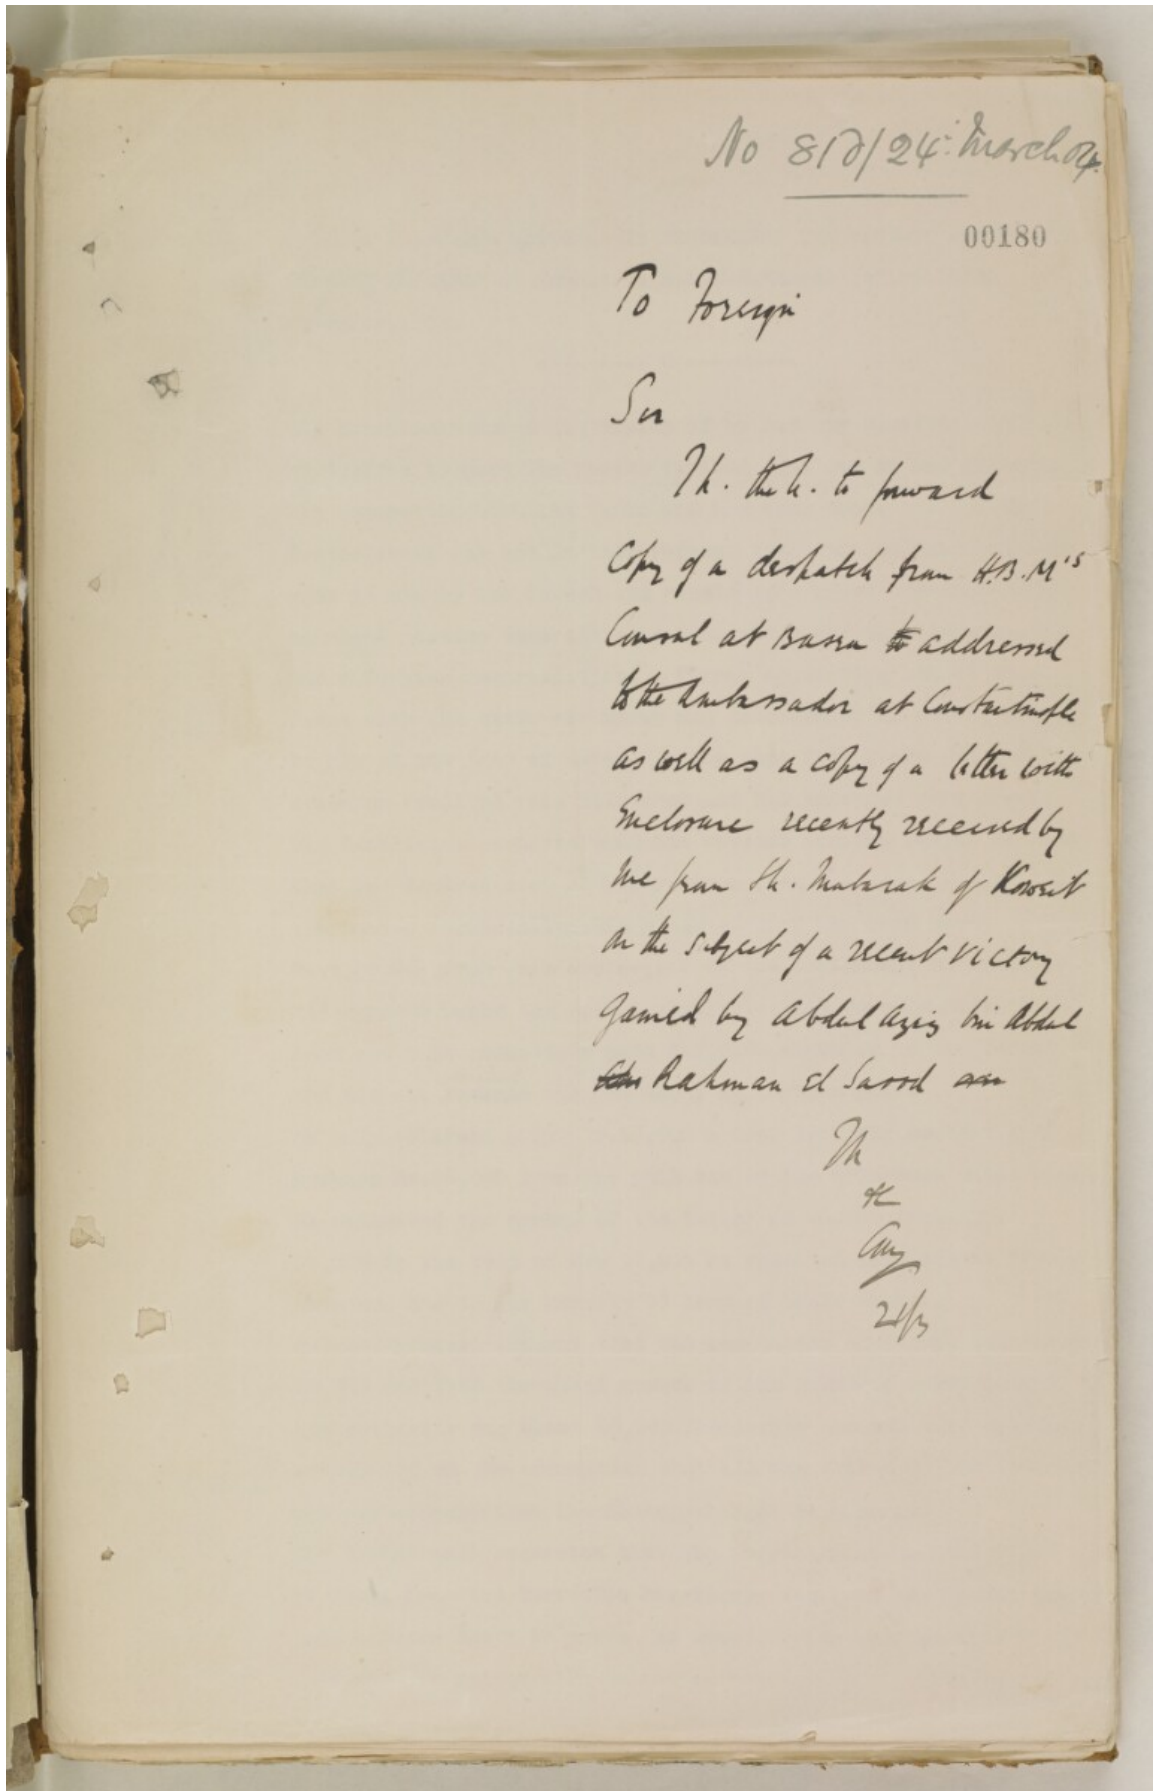 No 81 /24: March 04.
00180
To Foreign
Sir
Ih. the h. to forward
Copy of a despatch from H.B.M's
Consul at Basra addressed
to the Ambassador at Constantinople
as well as a copy of a letter with
Enclosure recently received by
me from Sh. Mubarak of Koweit
on the subject of a recent victory
gained by Abdul Aziz bin Abdul
Rahman el Saood
Ih
21/3